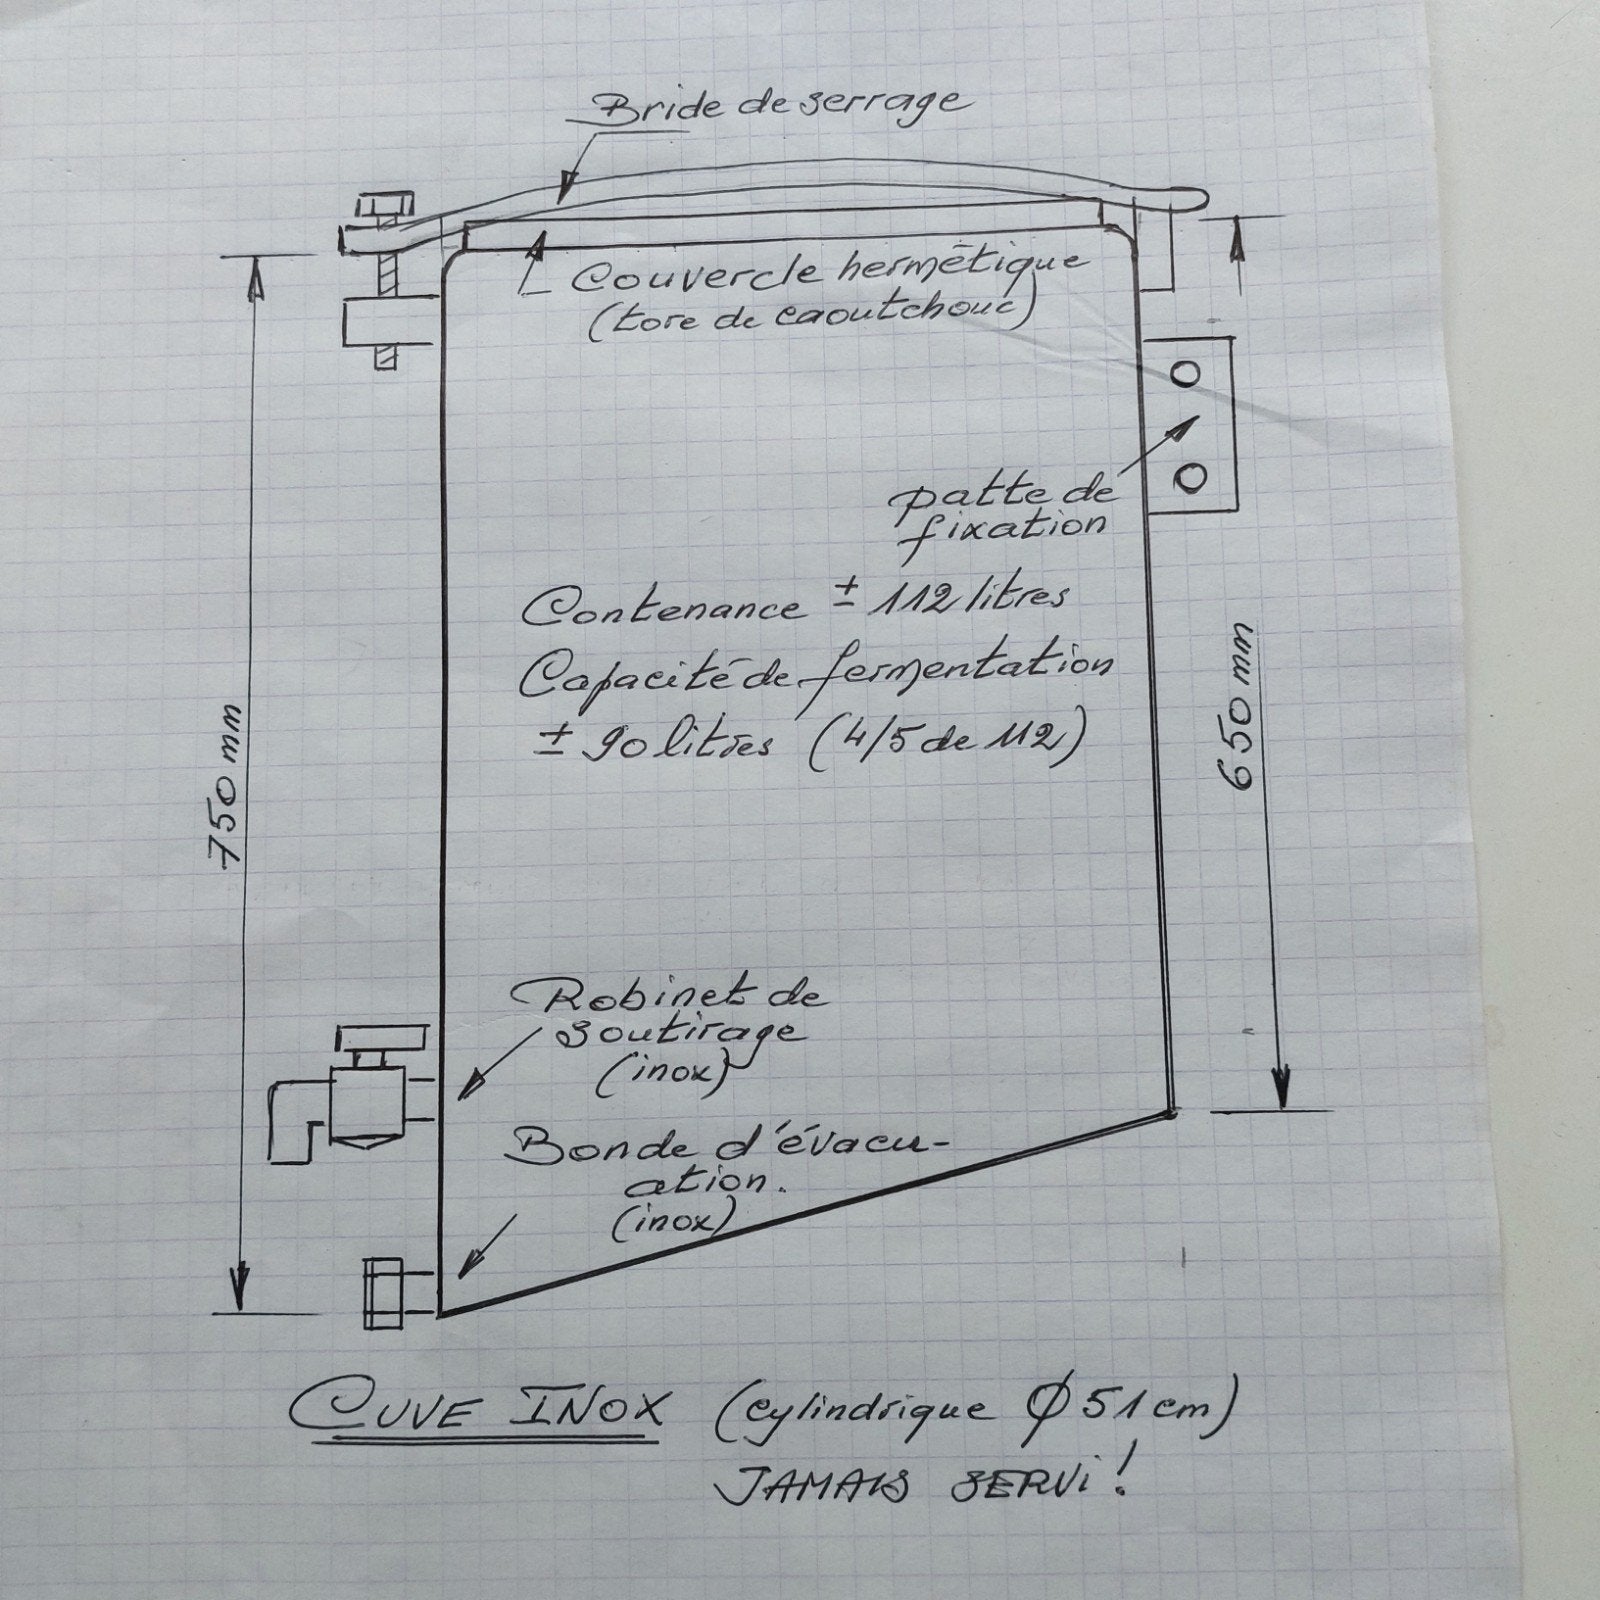 Bride de serrage
Couvercle hermétique
(tore de caoutchouc)
patte de
fixation
Contenance ± 112 litres
Capacité de fermentation
± 90 litres (4/5 de 112)
750 mm
650 mm
Robinet de
soutirage
(inox)
Bonde d'évacu-
ation.
(inox)
CUVE INOX (cylindrique Ø 51 cm)
JAMAIS SERVI!